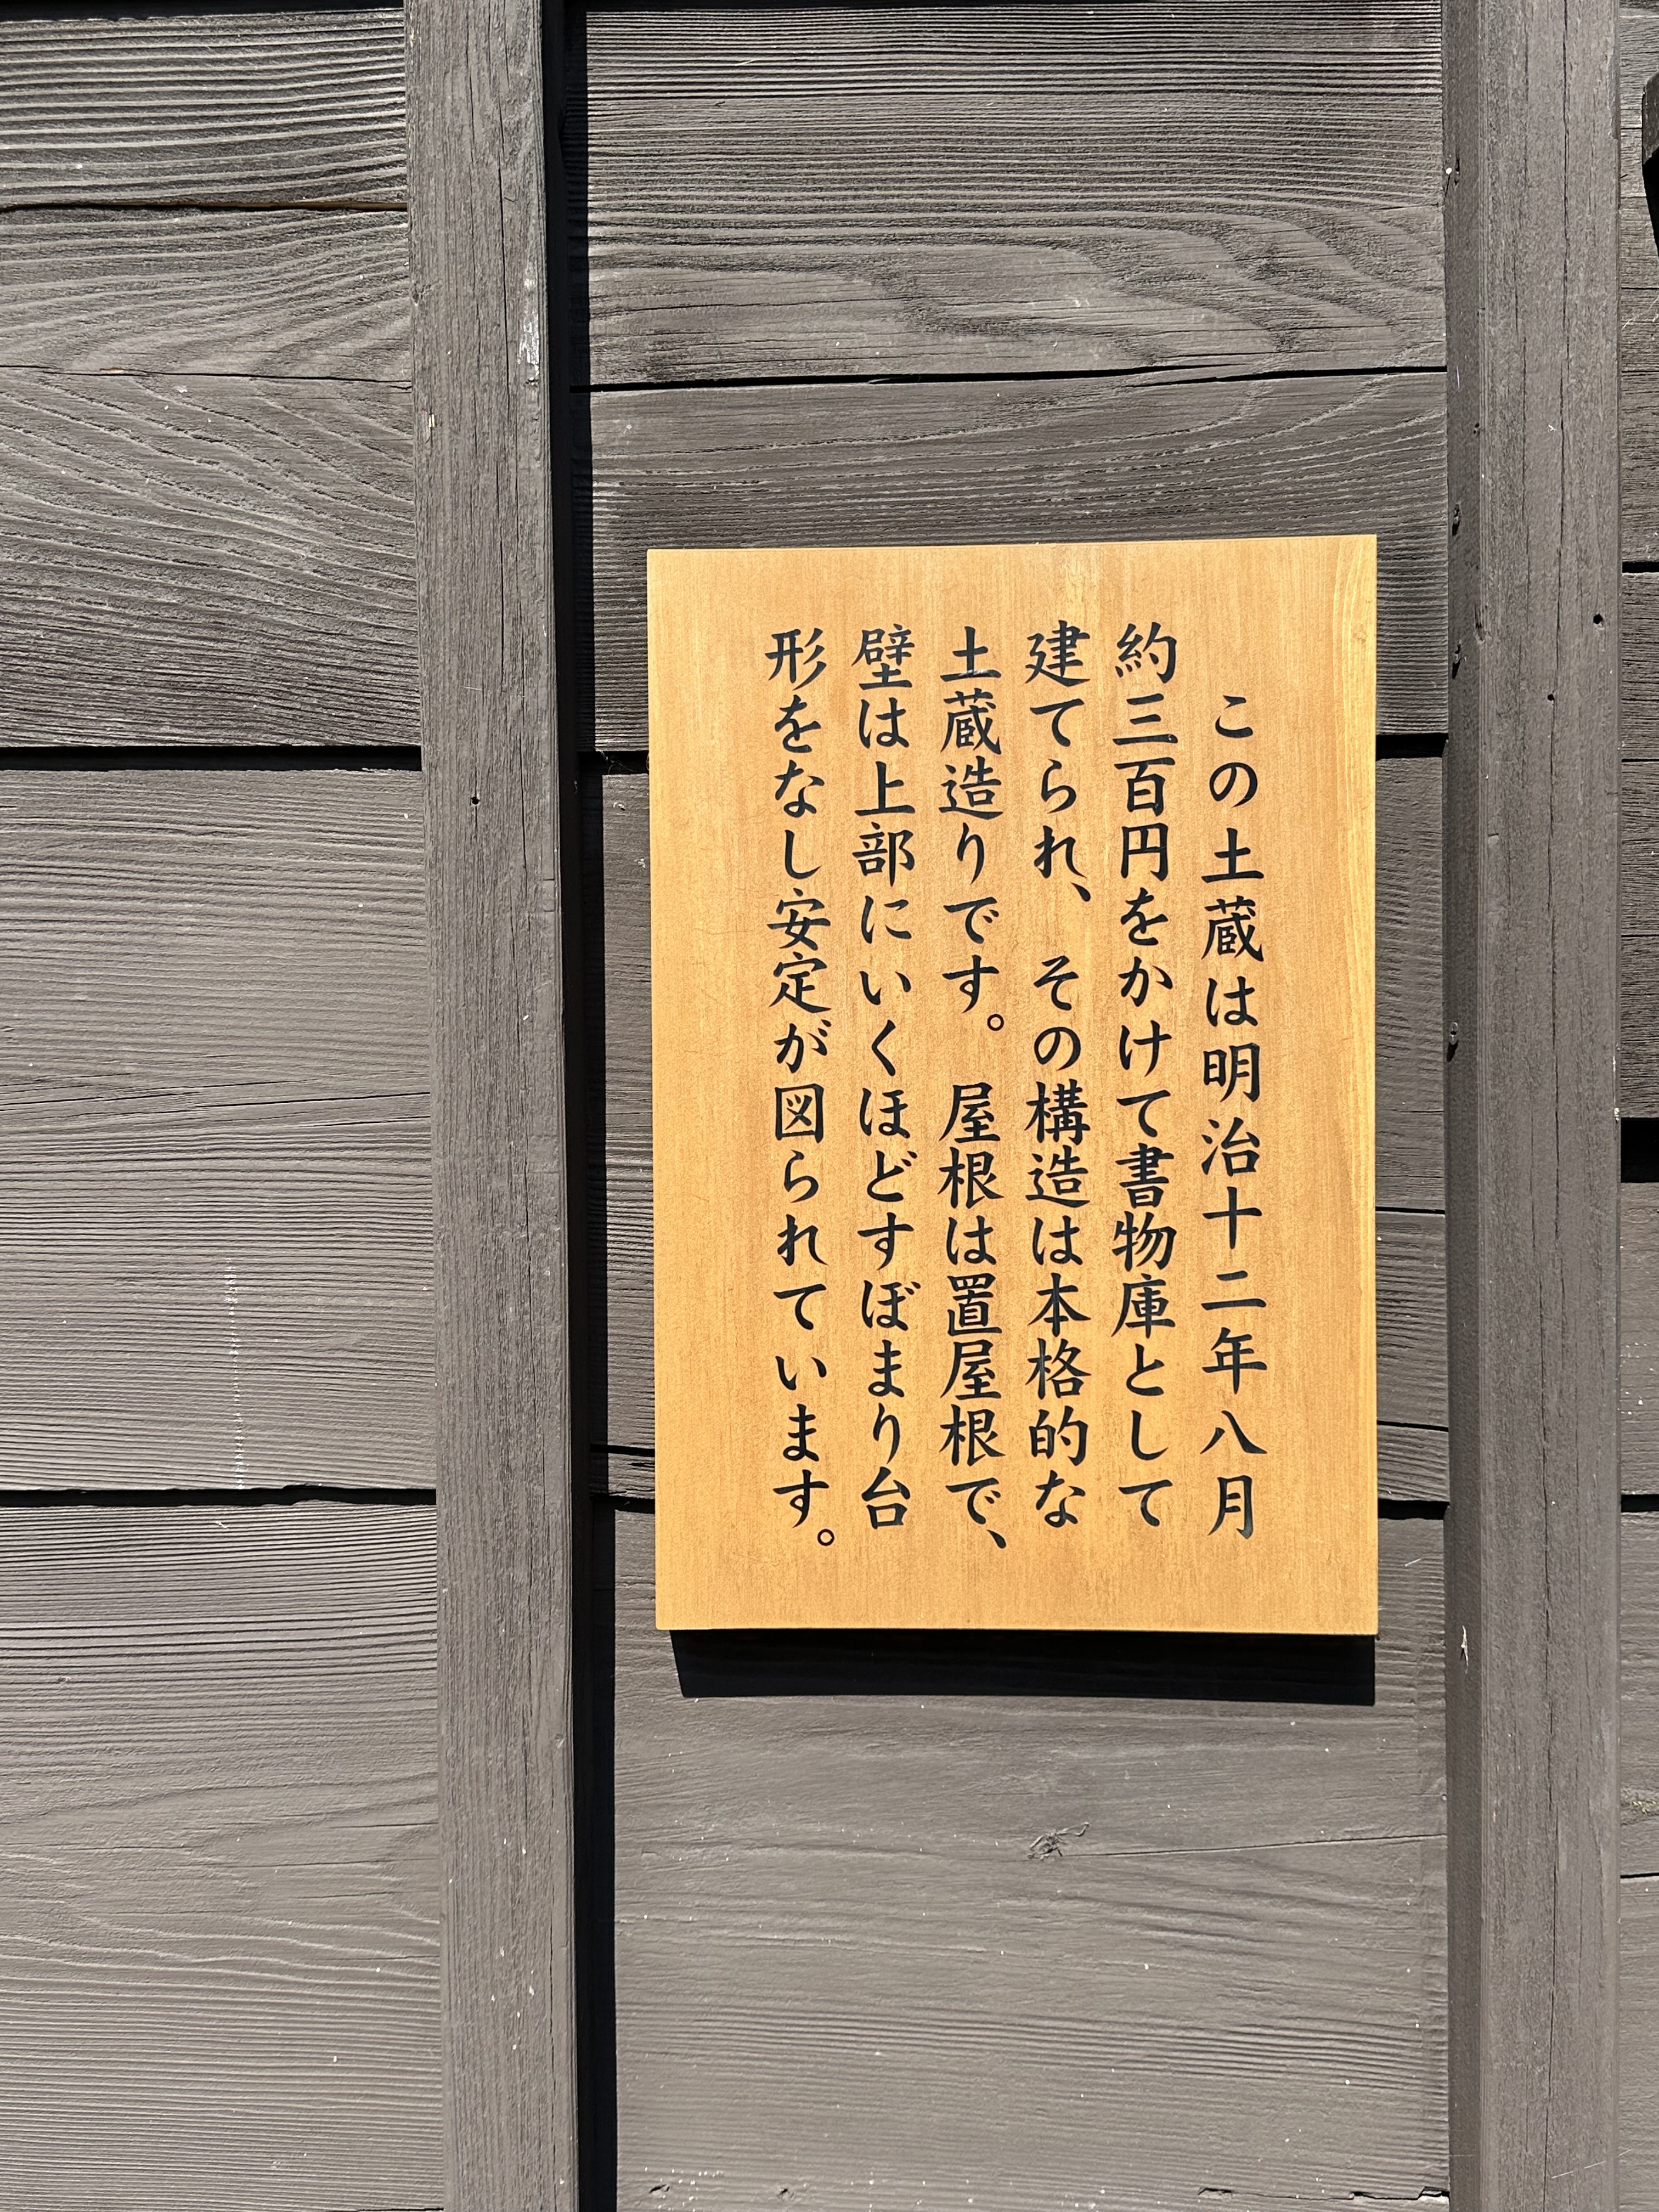 この土蔵は明治十二年八月
約三百円をかけて書物庫として
建てられ、その構造は本格的な
土蔵造りです。屋根は置屋根で、
壁は上部にいくほどすぼまり台
形をなし安定が図られています。